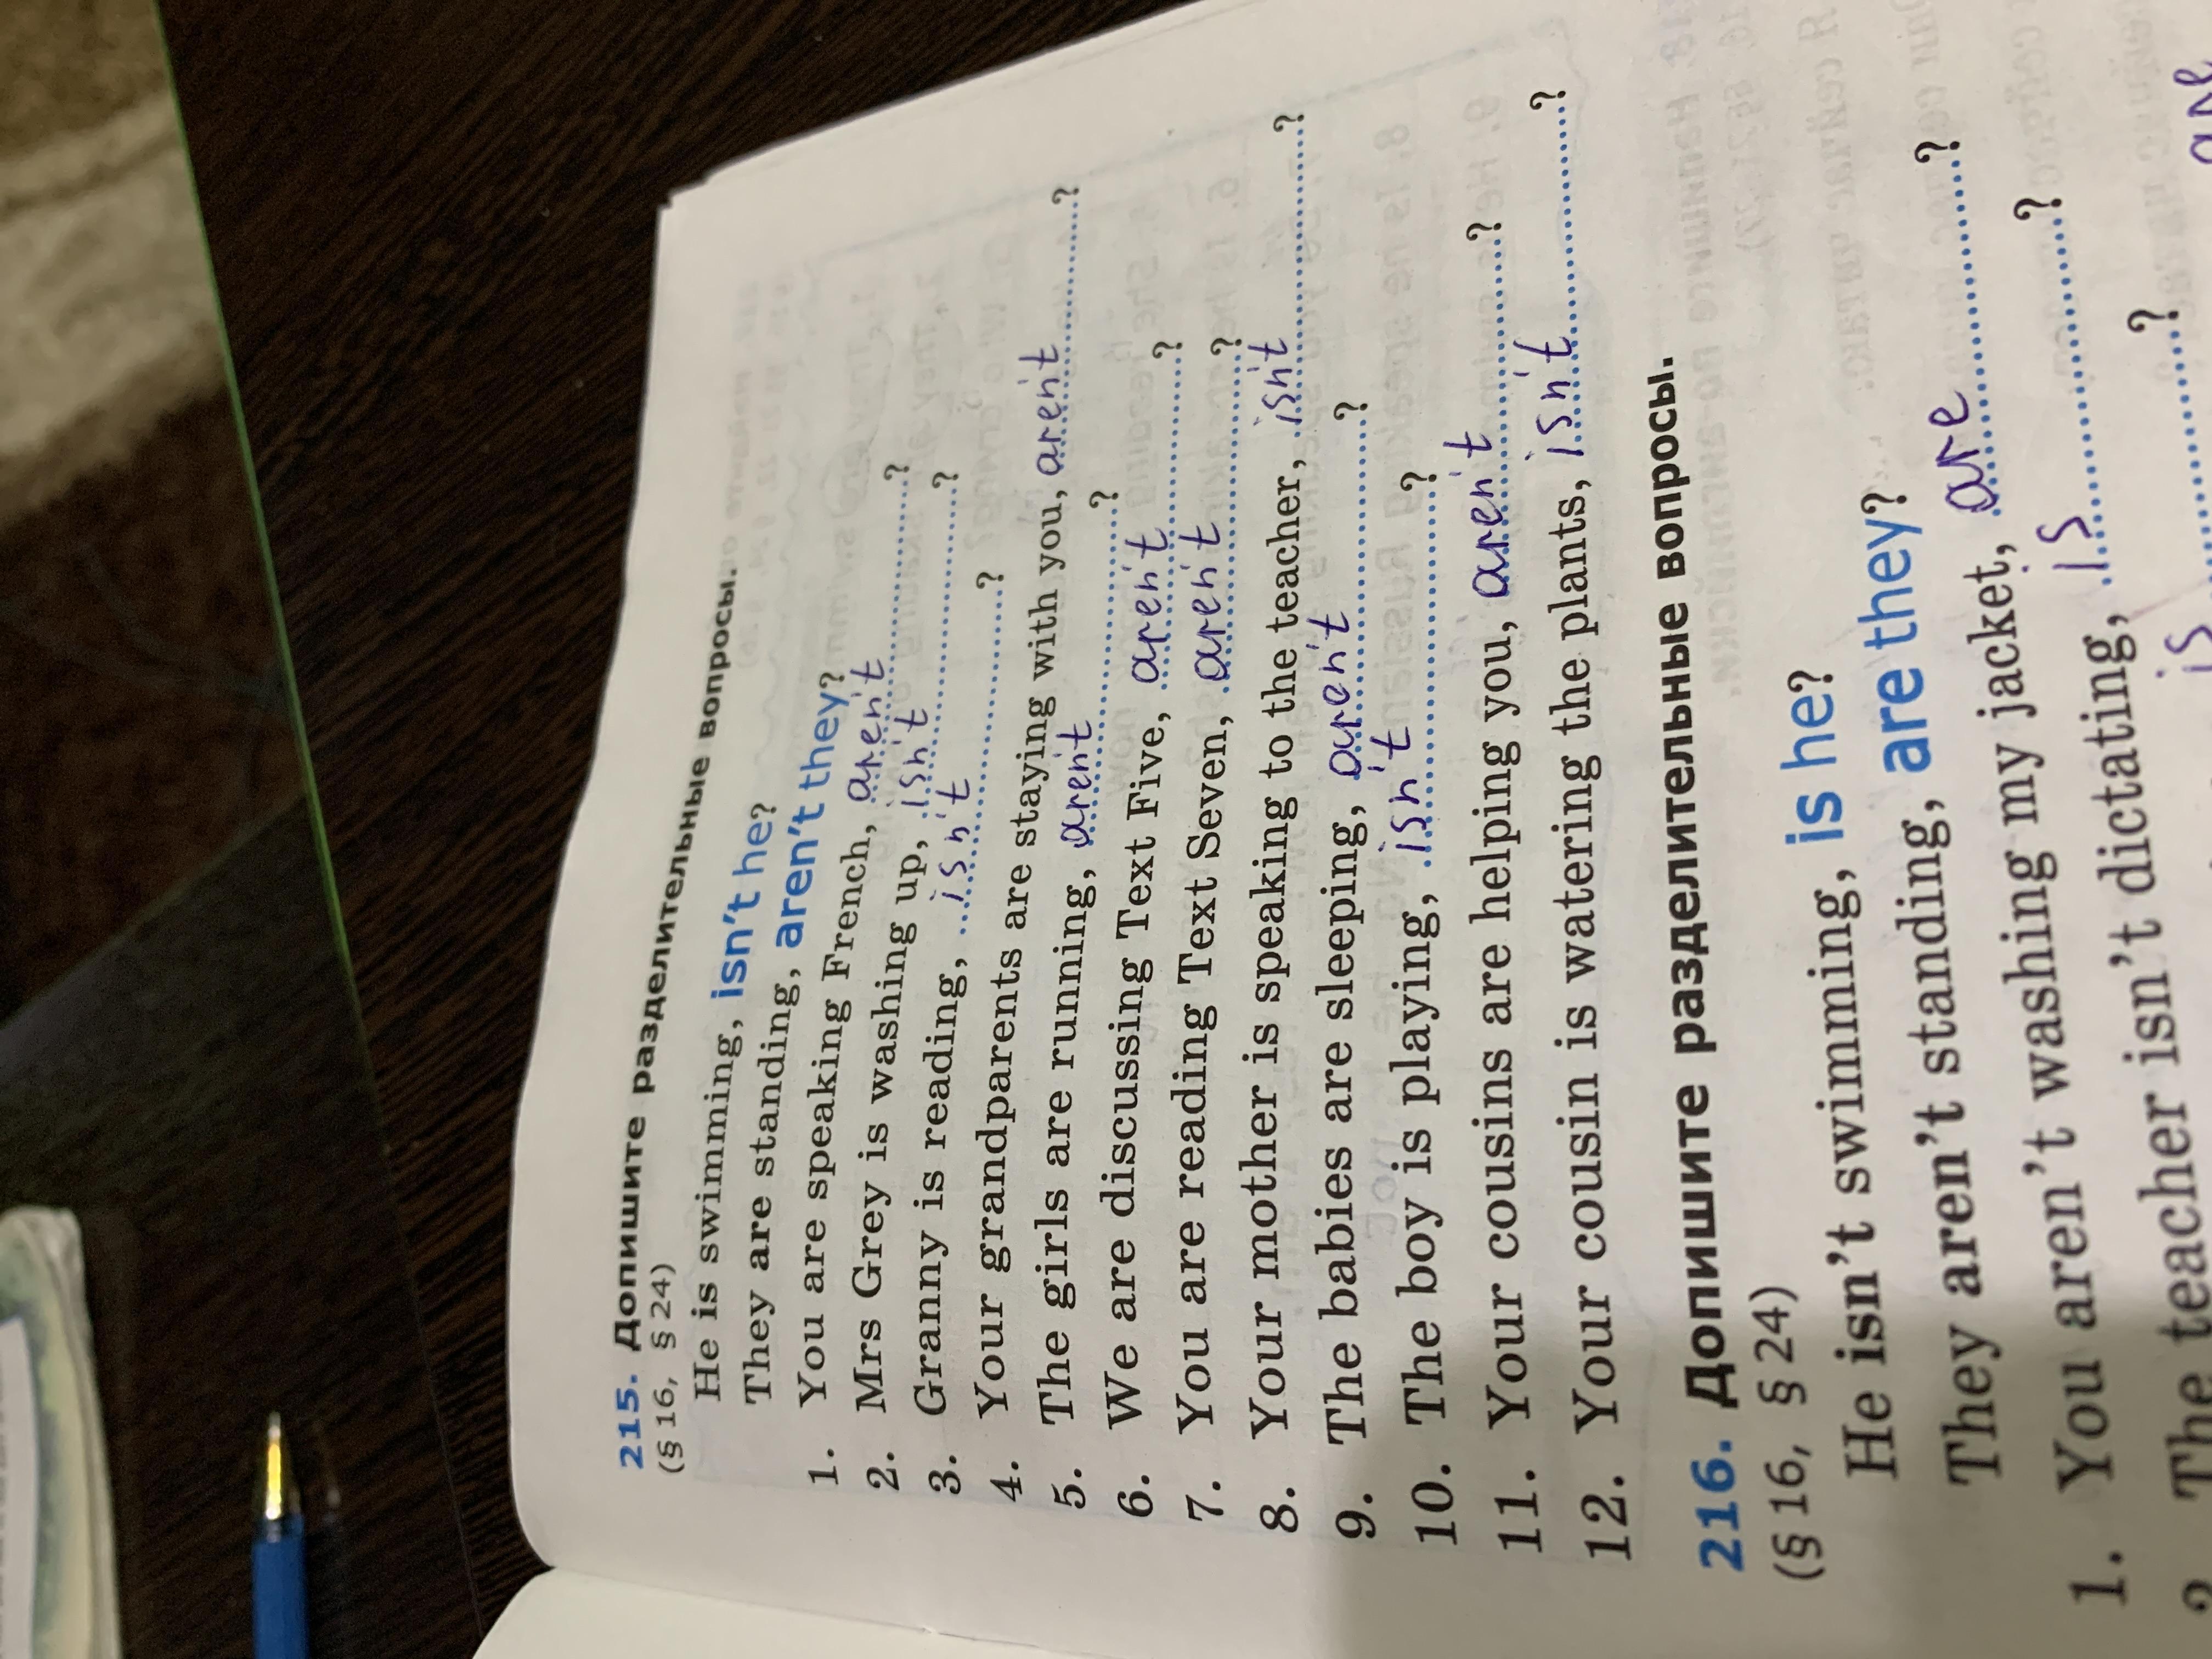 215. Допишите разделительные вопросы.
(§ 16, § 24)
He is swimming, isn't he?
They are standing, aren't they?
1. You are speaking French, aren't ?
2. Mrs Grey is washing up, isn't ?
3. Granny is reading, isn't ?
4. Your grandparents are staying with you, aren't ?
5. The girls are running, aren't ?
6. We are discussing Text Five, aren't ?
7. You are reading Text Seven, aren't ?
8. Your mother is speaking to the teacher, isn't ?
9. The babies are sleeping, aren't ?
10. The boy is playing, isn't ?
11. Your cousins are helping you, aren't ?
12. Your cousin is watering the plants, isn't ?
216. Допишите разделительные вопросы.
(§ 16, § 24)
He isn't swimming, is he?
They aren't standing, are they?
1. You aren't washing my jacket, are ?
2. The teacher isn't dictating, is ?
is ?
are